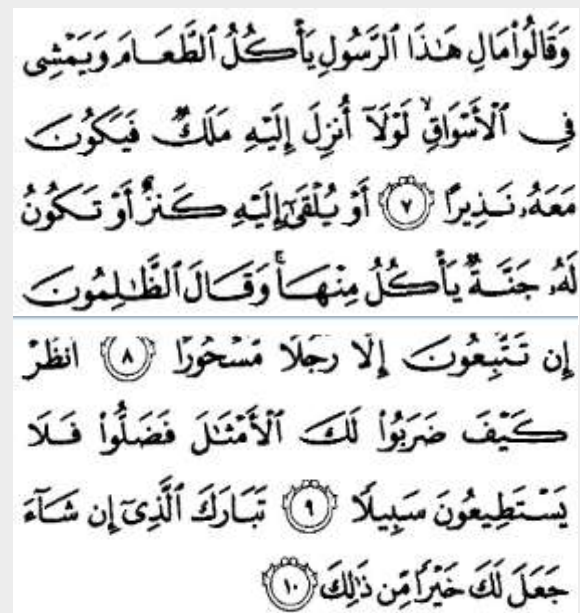 وَقَالُوا۟ مَالِ هَـٰذَا ٱلرَّسُولِ يَأْكُلُ ٱلطَّعَامَ وَيَمْشِى
فِى ٱلْأَسْوَاقِ ۙ لَوْلَآ أُنزِلَ إِلَيْهِ مَلَكٌ فَيَكُونَ
مَعَهُۥ نَذِيرًا ٧ أَوْ يُلْقَىٰٓ إِلَيْهِ كَنزٌ أَوْ تَكُونُ
لَهُۥ جَنَّةٌ يَأْكُلُ مِنْهَا ۚ وَقَالَ ٱلظَّـٰلِمُونَ
إِن تَتَّبِعُونَ إِلَّا رَجُلًا مَّسْحُورًا ٨ ٱنظُرْ
كَيْفَ ضَرَبُوا۟ لَكَ ٱلْأَمْثَـٰلَ فَضَلُّوا۟ فَلَا
يَسْتَطِيعُونَ سَبِيلًا ٩ تَبَارَكَ ٱلَّذِىٓ إِن شَآءَ
جَعَلَ لَكَ خَيْرًا مِّن ذَٰلِكَ ١٠